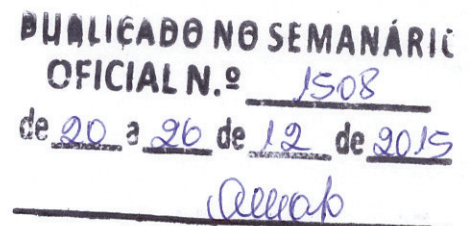 PUBLICADO NO SEMANÁRIO
OFICIAL N.º 1508
de 20 a 26 de 12 de 2015